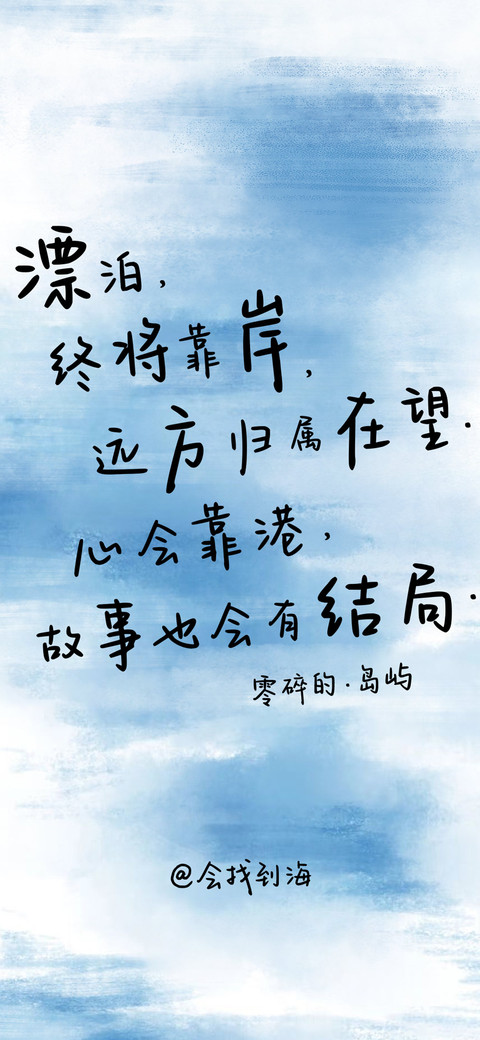 漂泊，
终将靠岸，
远方归属在望.
心会靠港，
故事也会有结局.
零碎的.岛屿
@会找到海